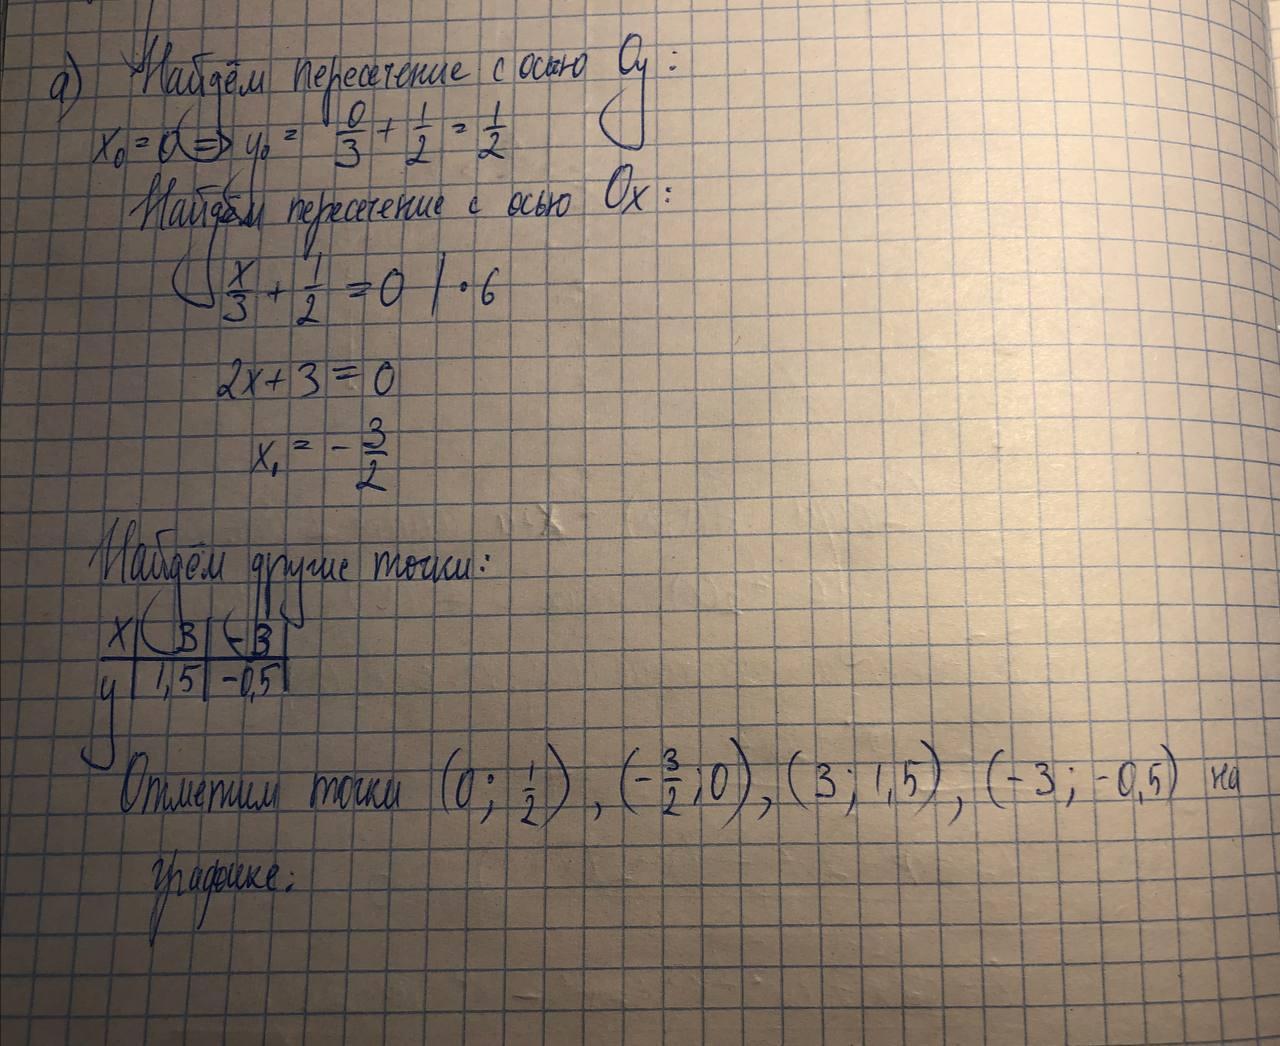 а) Найдём пересечение с осью Oy:
x₀ = 0 => y₀ = 0/3 + 1/2 = 1/2
Найдём пересечение с осью Ox:
x/3 + 1/2 = 0 | · 6
2x + 3 = 0
x₁ = - 3/2
Найдём другие точки:
x | 3 | -3 |
y | 1,5 | -0,5 |
Отметим точки (0; 1/2), (-3/2; 0), (3; 1,5), (-3; -0,5) на
графике: